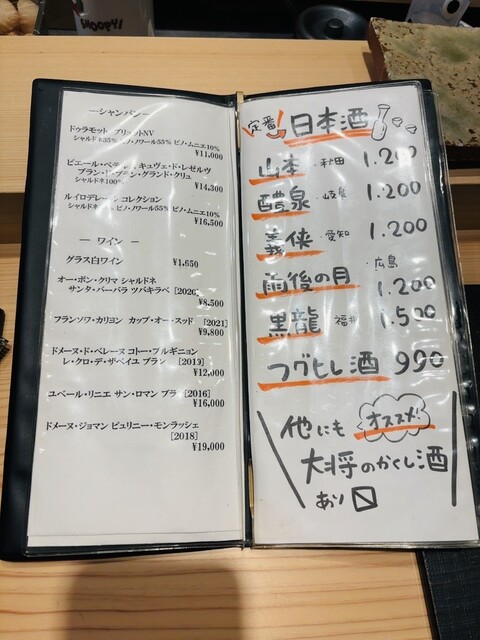 SNOOPY!
ーシャンパンー
ドゥラモット ブリュットNV
シャルドネ35% ピノ・ノワール55% ピノ・ムニエ10%
¥11,000
ピエール・ペテルス キュヴェ・ド・レゼルヴ
ブラン・ド・ブラン・グランド・クリュ
シャルドネ100%
¥14,300
ルイロデレール コレクション
シャルドネ ピノ・ノワール55% ピノ・ムニエ10%
¥16,500
ー ワイン ー
グラス白ワイン ¥1,650
オー・ボン・クリマ シャルドネ
サンタ・バーバラ ツバキラベ [2020]
¥8,500
フランソワ・カリヨン カップ・オー・スッド [2021]
¥9,800
ドメーヌ・ド・ベレーヌ コトー・ブルギニョン
レ・クロ・デ・ザペイユ ブラン [2019]
¥12,000
ユベール・リニエ サン・ロマン ブラン [2016]
¥16,000
ドメーヌ・ジョマン ピュリニー・モンラッシェ
[2018]
¥19,000
定番 日本酒
山本・秋田 1.200
醴泉・岐阜 1.200
義侠・愛知 1.200
雨後の月・広島 1.200
黒龍 福井 1.500
フグヒレ酒 990
他にも オススメ!
大将のかくし酒
あり〼